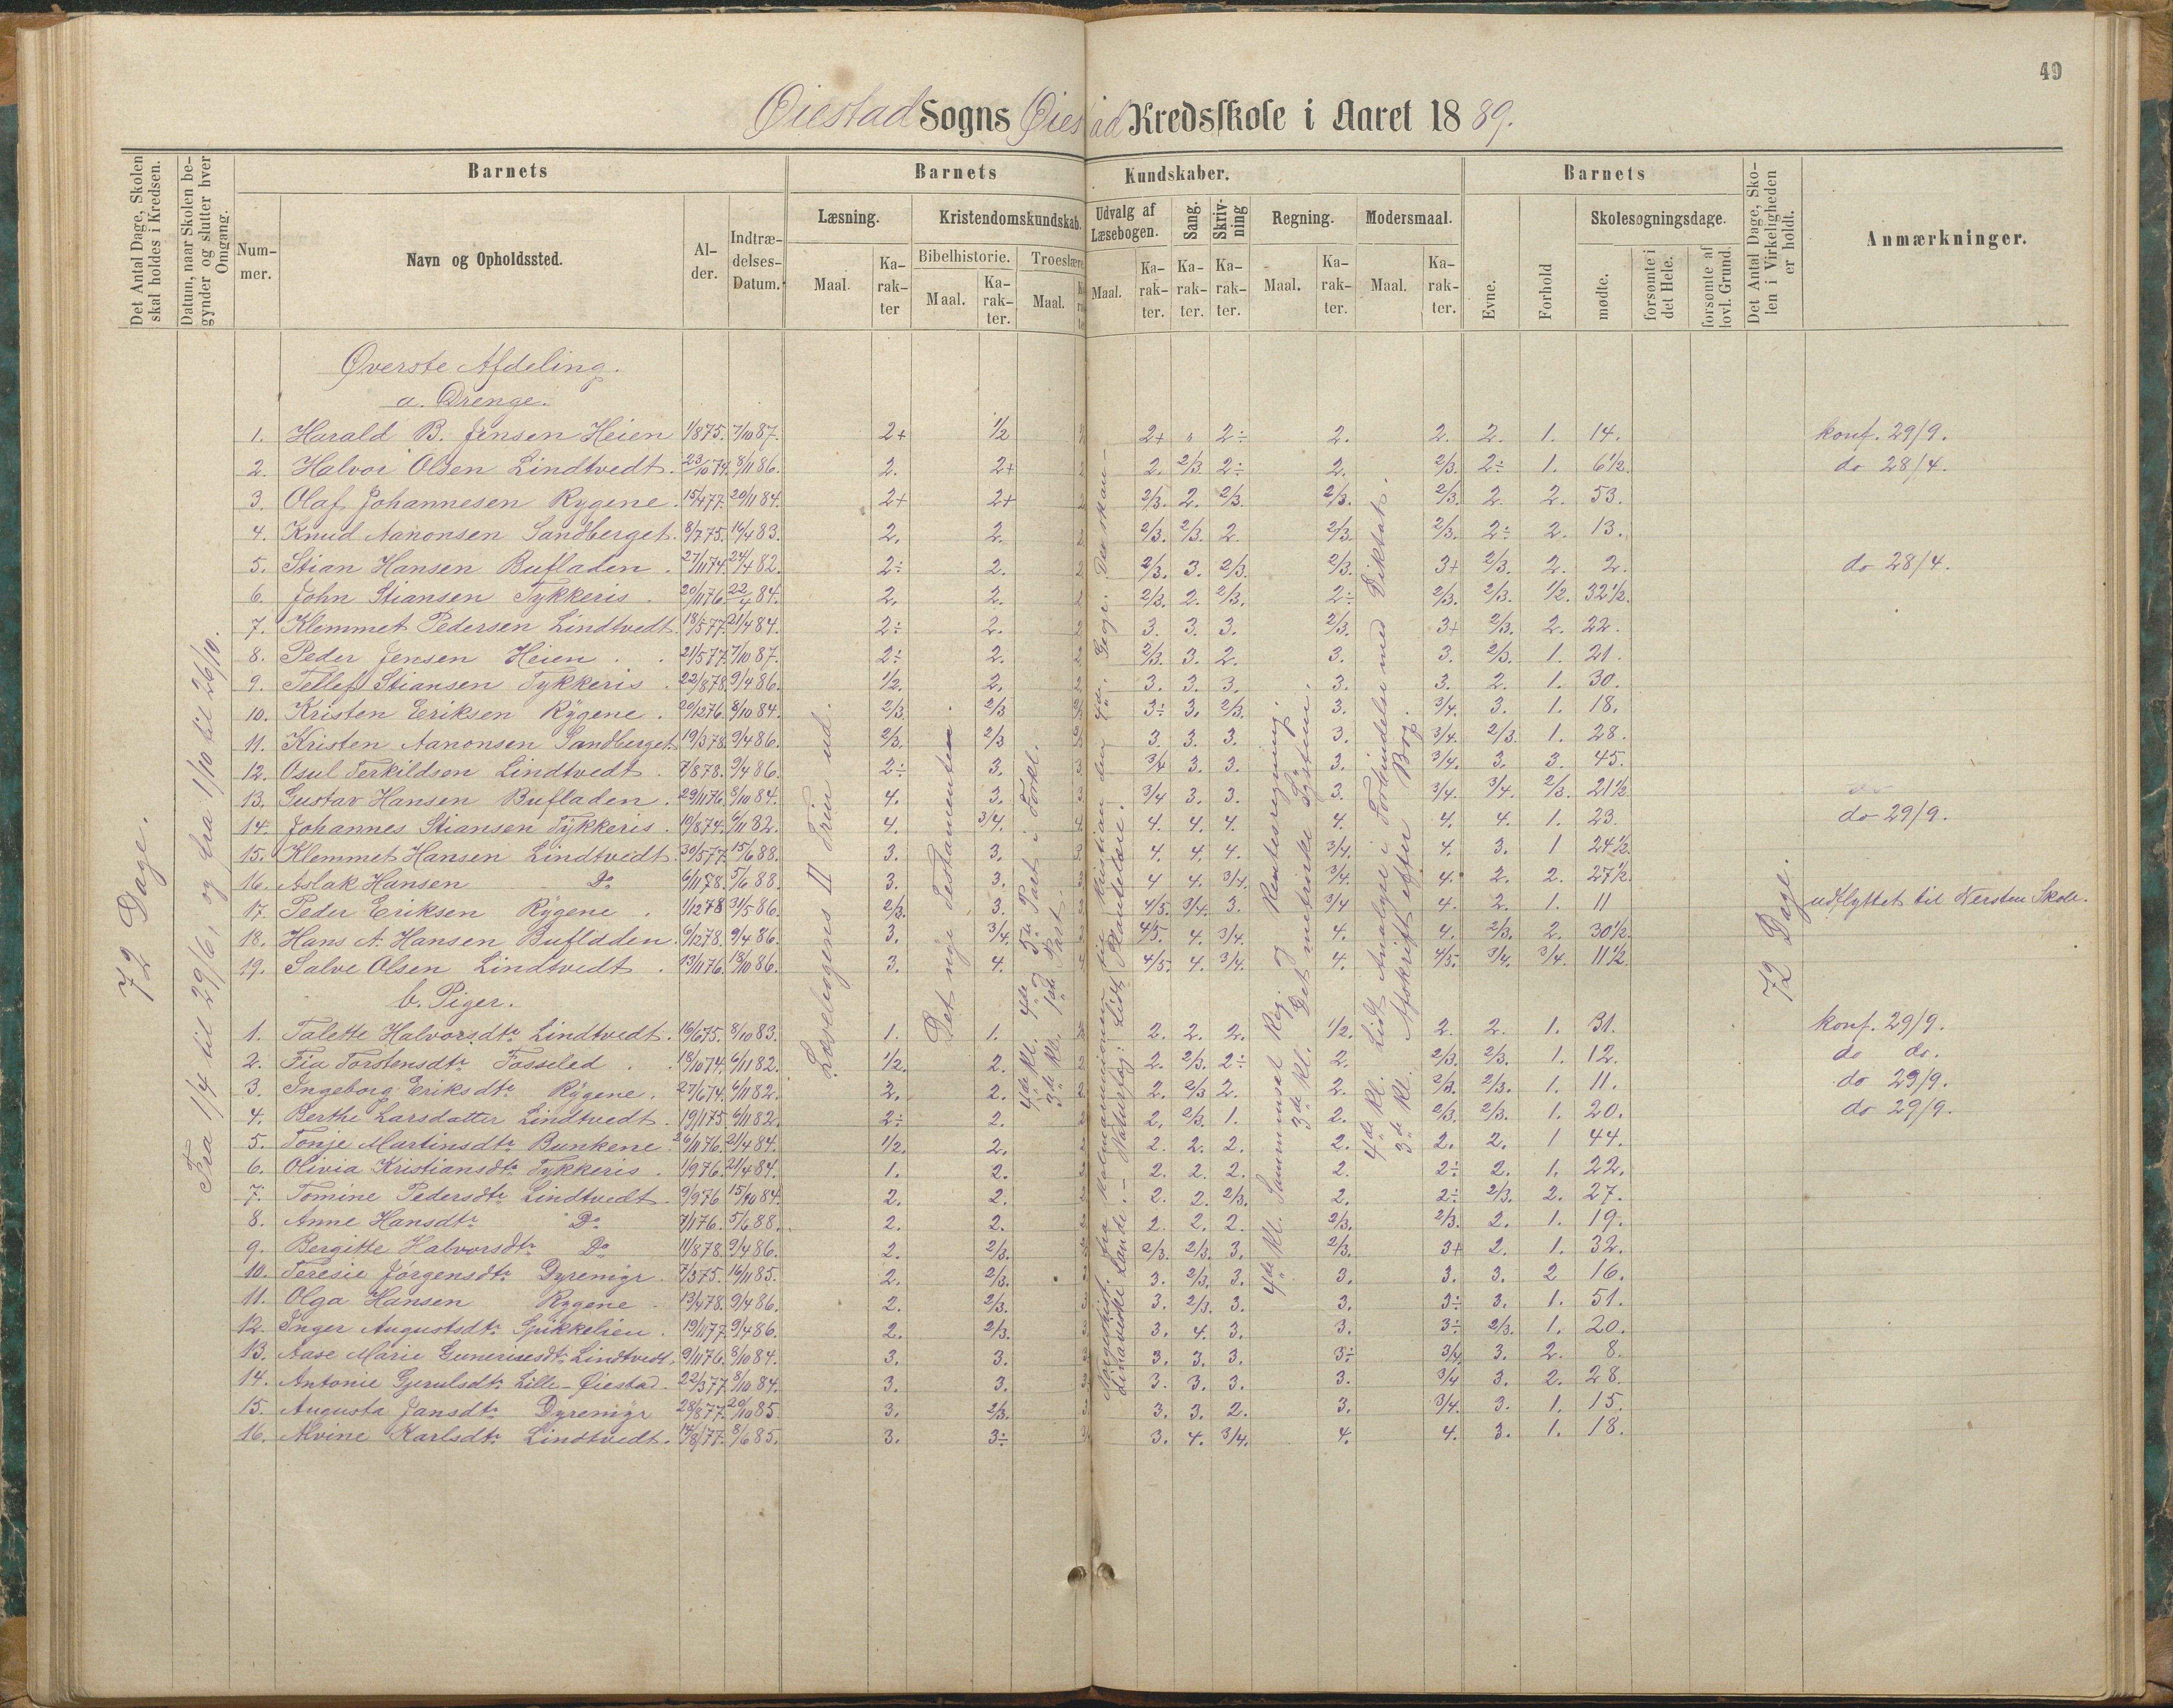 49
Øiestad Sogns Øiestad Kredsskole i Aaret 1889.
Det Antal Dage, Skolen skal holdes i Kredsen.
Datum, naar Skolen begynder og slutter hver Omgang.
Barnets
Nummer.
Navn og Opholdssted.
Alder.
Indtrædelses-Datum.
Barnets Kundskaber.
Læsning.
Maal.
Karakter
Kristendomskundskab.
Bibelhistorie.
Maal.
Karakter.
Troeslære
Maal.
Udvalg af Læsebogen.
Maal.
Karakter.
Sang.
Karakter.
Skrivning
Karakter.
Regning.
Maal.
Karakter.
Modersmaal.
Maal.
Karakter.
Barnets
Evne.
Forhold
Skolesøgningsdage.
mødte.
forsømte i det Hele.
forsømte af lovl. Grund.
Det Antal Dage, Skolen i Virkeligheden er holdt.
Anmærkninger.
72 Dage.
Fra 1/4 til 29/6, og fra 1/10 til 26/10.
Læsebogens II Trin ud.
Det nye Testamenten.
4de Kl. 4de og 5te Part i Forkl.
3de Kl. 1ste Part.
4de Kl. Sammensat Reg. og Rentesregning.
3de Kl. Det metriske System.
4de Kl. Lidt Analyse i Forbindelse med Diktat.
3de Kl. Afskrift efter Bog.
72 Dage.
Øverste Afdeling.
a. Drenge.
1. Harald B. Jensen Heien 1/8 75. 7/10 87. 2+ 1/2 2+ 2÷ 2. 2. 2. 1. 14. konf. 29/9.
2. Halvor Olsen Lindtvedt. 23/10 74. 8/11 86. 2. 2+ 2. 2/3. 2÷ 2. 2/3. 2÷ 1. 6 1/2. do 28/4.
3. Olaf Johannesen Rygene. 15/4 77. 20/11 84. 2+ 2+ 2/3. 2. 2/3. 2/3. 2/3. 2. 2. 53.
4. Knud Aanonsen Sandberget. 8/7 75. 16/4 83. 2. 2. 2/3. 2/3. 2 2/3. 2/3. 2÷ 2. 13.
5. Stian Hansen Bufladen. 27/11 74. 24/4 82. 2÷ 2. 2/3. 3. 2/3. 2/3. 3+ 2/3. 2. 2. do 28/4.
6. John Stiansen Tykkeris. 20/11 76. 22/4 84. 2. 2. 2/3. 2. 2/3. 2÷ 2/3. 2/3. 1/2. 32 1/2.
7. Klemmet Pedersen Lindtvedt. 18/5 77. 21/4 84. 2÷ 2. 3. 3. 3. 2/3. 3+ 2/3. 2. 22.
8. Peder Jensen Heien. 21/5 77. 7/10 87. 2÷ 2. 2/3. 3. 2. 3. 3. 2/3. 1. 21.
9. Tellef Stiansen Tykkeris. 22/8 78. 9/4 86. 1/2. 2. 3. 3. 3. 3. 3. 2. 1. 30.
10. Kristen Eriksen Rygene. 20/12 76. 8/10 84. 2/3. 2/3 3÷ 3. 2/3. 3. 3/4. 3. 1. 18.
11. Kristen Aanonsen Sandberget. 19/3 78. 9/4 86. 2/3. 2/3 3. 3. 3. 3. 3/4. 2/3. 1. 28.
12. Osul Terkildsen Lindtvedt. 7/8 78. 9/4 86. 2÷ 3. 3/4 3. 3. 3. 3/4. 3. 3. 45.
13. Gustav Hansen Bufladen. 29/11 76. 8/10 84. 4. 3. 3/4 3. 3. 3. 3/4. 3/4. 2/3. 21 1/2.
14. Johannes Stiansen Tykkeris. 19/8 74. 6/11 82. 4. 3/4. 4. 4. 4. 4. 4. 4. 1. 23. do 29/9.
15. Klemmet Hansen Lindtvedt. 30/5 77. 15/6 88. 3. 3. 4. 4. 4. 3/4. 4. 3. 1 24 1/2.
16. Aslak Hansen Do 6/11 78. 5/6 88. 3. 3. 4 4. 3/4. 3/4. 4. 2. 2. 27 1/2.
17. Peder Eriksen Rygene. 1/2 78 31/5 86. 2/3. 3. 4/5. 3/4. 3. 3/4 4. 2. 1. 11 udflyttet til Nersten Skole.
18. Hans A. Hansen Bufladen. 6/2 78. 9/4 86. 3. 3/4. 4/5. 4. 3/4. 4. 4. 2/3. 2. 30 1/2.
19. Salve Olsen Lindtvedt. 13/11 76. 18/10 86. 3. 4. 4/5. 4. 3/4. 4. 4/5. 3/4. 3/4. 11 1/2.
b. Piger.
1. Talette Halvorsdtr. Lindtvedt. 16/6 75. 8/10 83. 1. 1. 2. 2. 2. 1/2. 2. 2. 1. 31. konf. 29/9.
2. Fia Torstensdtr. Fosseled. 18/10 74. 6/11 82. 1/2. 2. 2. 2/3. 2÷ 2. 2/3. 2/3. 1. 12. do do.
3. Ingeborg Eriksdtr. Rygene. 27/6 74. 6/11 82. 2. 2. 2. 2/3 2. 2. 2/3. 2/3. 1. 11. do 29/9.
4. Berthe Larsdatter Lindtvedt. 19/1 75. 6/11 82. 2÷ 2. 2. 2/3. 1. 2. 2/3. 2/3. 1. 20. do 29/9.
5. Tonje Martinsdtr. Bunkene. 26/11 76. 21/4 84. 1/2. 2. 2. 2. 2. 2. 2. 2. 1 44.
6. Olivia Kristiansdtr. Tykkeris. 1/9 76. 21/4 84. 1. 2. 2. 2. 2. 2. 2÷ 2. 1. 22.
7. Tomine Pedersdtr. Lindtvedt. 9/9 76 15/10 84 2. 2. 2. 2. 2/3. 2. 2÷ 2/3. 2. 27.
8. Anne Hansdtr. Do 7/1 76. 5/6 88. 2. 2. 2. 2. 2. 2/3. 2/3. 2. 1. 19.
9. Bergitte Halvorsdtr. Do 11/8 78. 9/4 86. 2. 2/3. 2/3. 2/3. 3. 2/3. 3+ 2. 1. 32.
10. Teresie Jørgensdtr. Dyremyr. 7/3 75. 16/11 85. 2. 2/3. 3. 2/3. 3. 3. 3. 3. 2 16.
11. Olga Hansen Rygene. 13/4 78. 9/4 86. 2. 2/3. 3. 2/3. 3. 3. 3÷ 3. 1. 51.
12. Inger Augustsdtr. Spikkelien. 19/11 77. 9/4 86. 2. 2/3. 3. 4. 3. 3. 3÷ 2/3. 1. 20.
13. Aase Marie Lindtvedt. 9/11 76. 8/10 84. 3. 3. 3. 3. 3. 3÷ 3/4 3. 2. 8.
14. Antonie Gjerulsdtr. Lille-Øiestad. 22/3 77. 8/10 84. 3. 3. 3. 3. 3. 3. 3/4 3. 2. 28.
15. Augusta Jansdtr. Dyremyr 28/8 77. 20/10 85. 3. 2/3. 3. 3. 2. 3. 3/4. 3. 1. 15.
16. Alvine Karlsdtr. Lindtvedt. 14/8 77. 8/6 85. 3. 3÷ 3. 4. 3/4. 4. 4. 3. 1. 18.